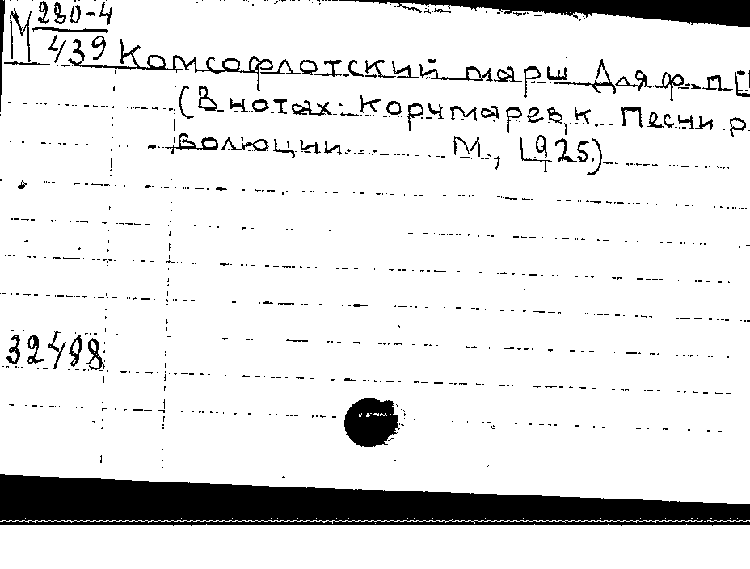 М 280-4
439 Комсофлотский марш Для ф.п [
(В нотах: Корчмарев, К. Песни р
волюции М., 1925.)
32488